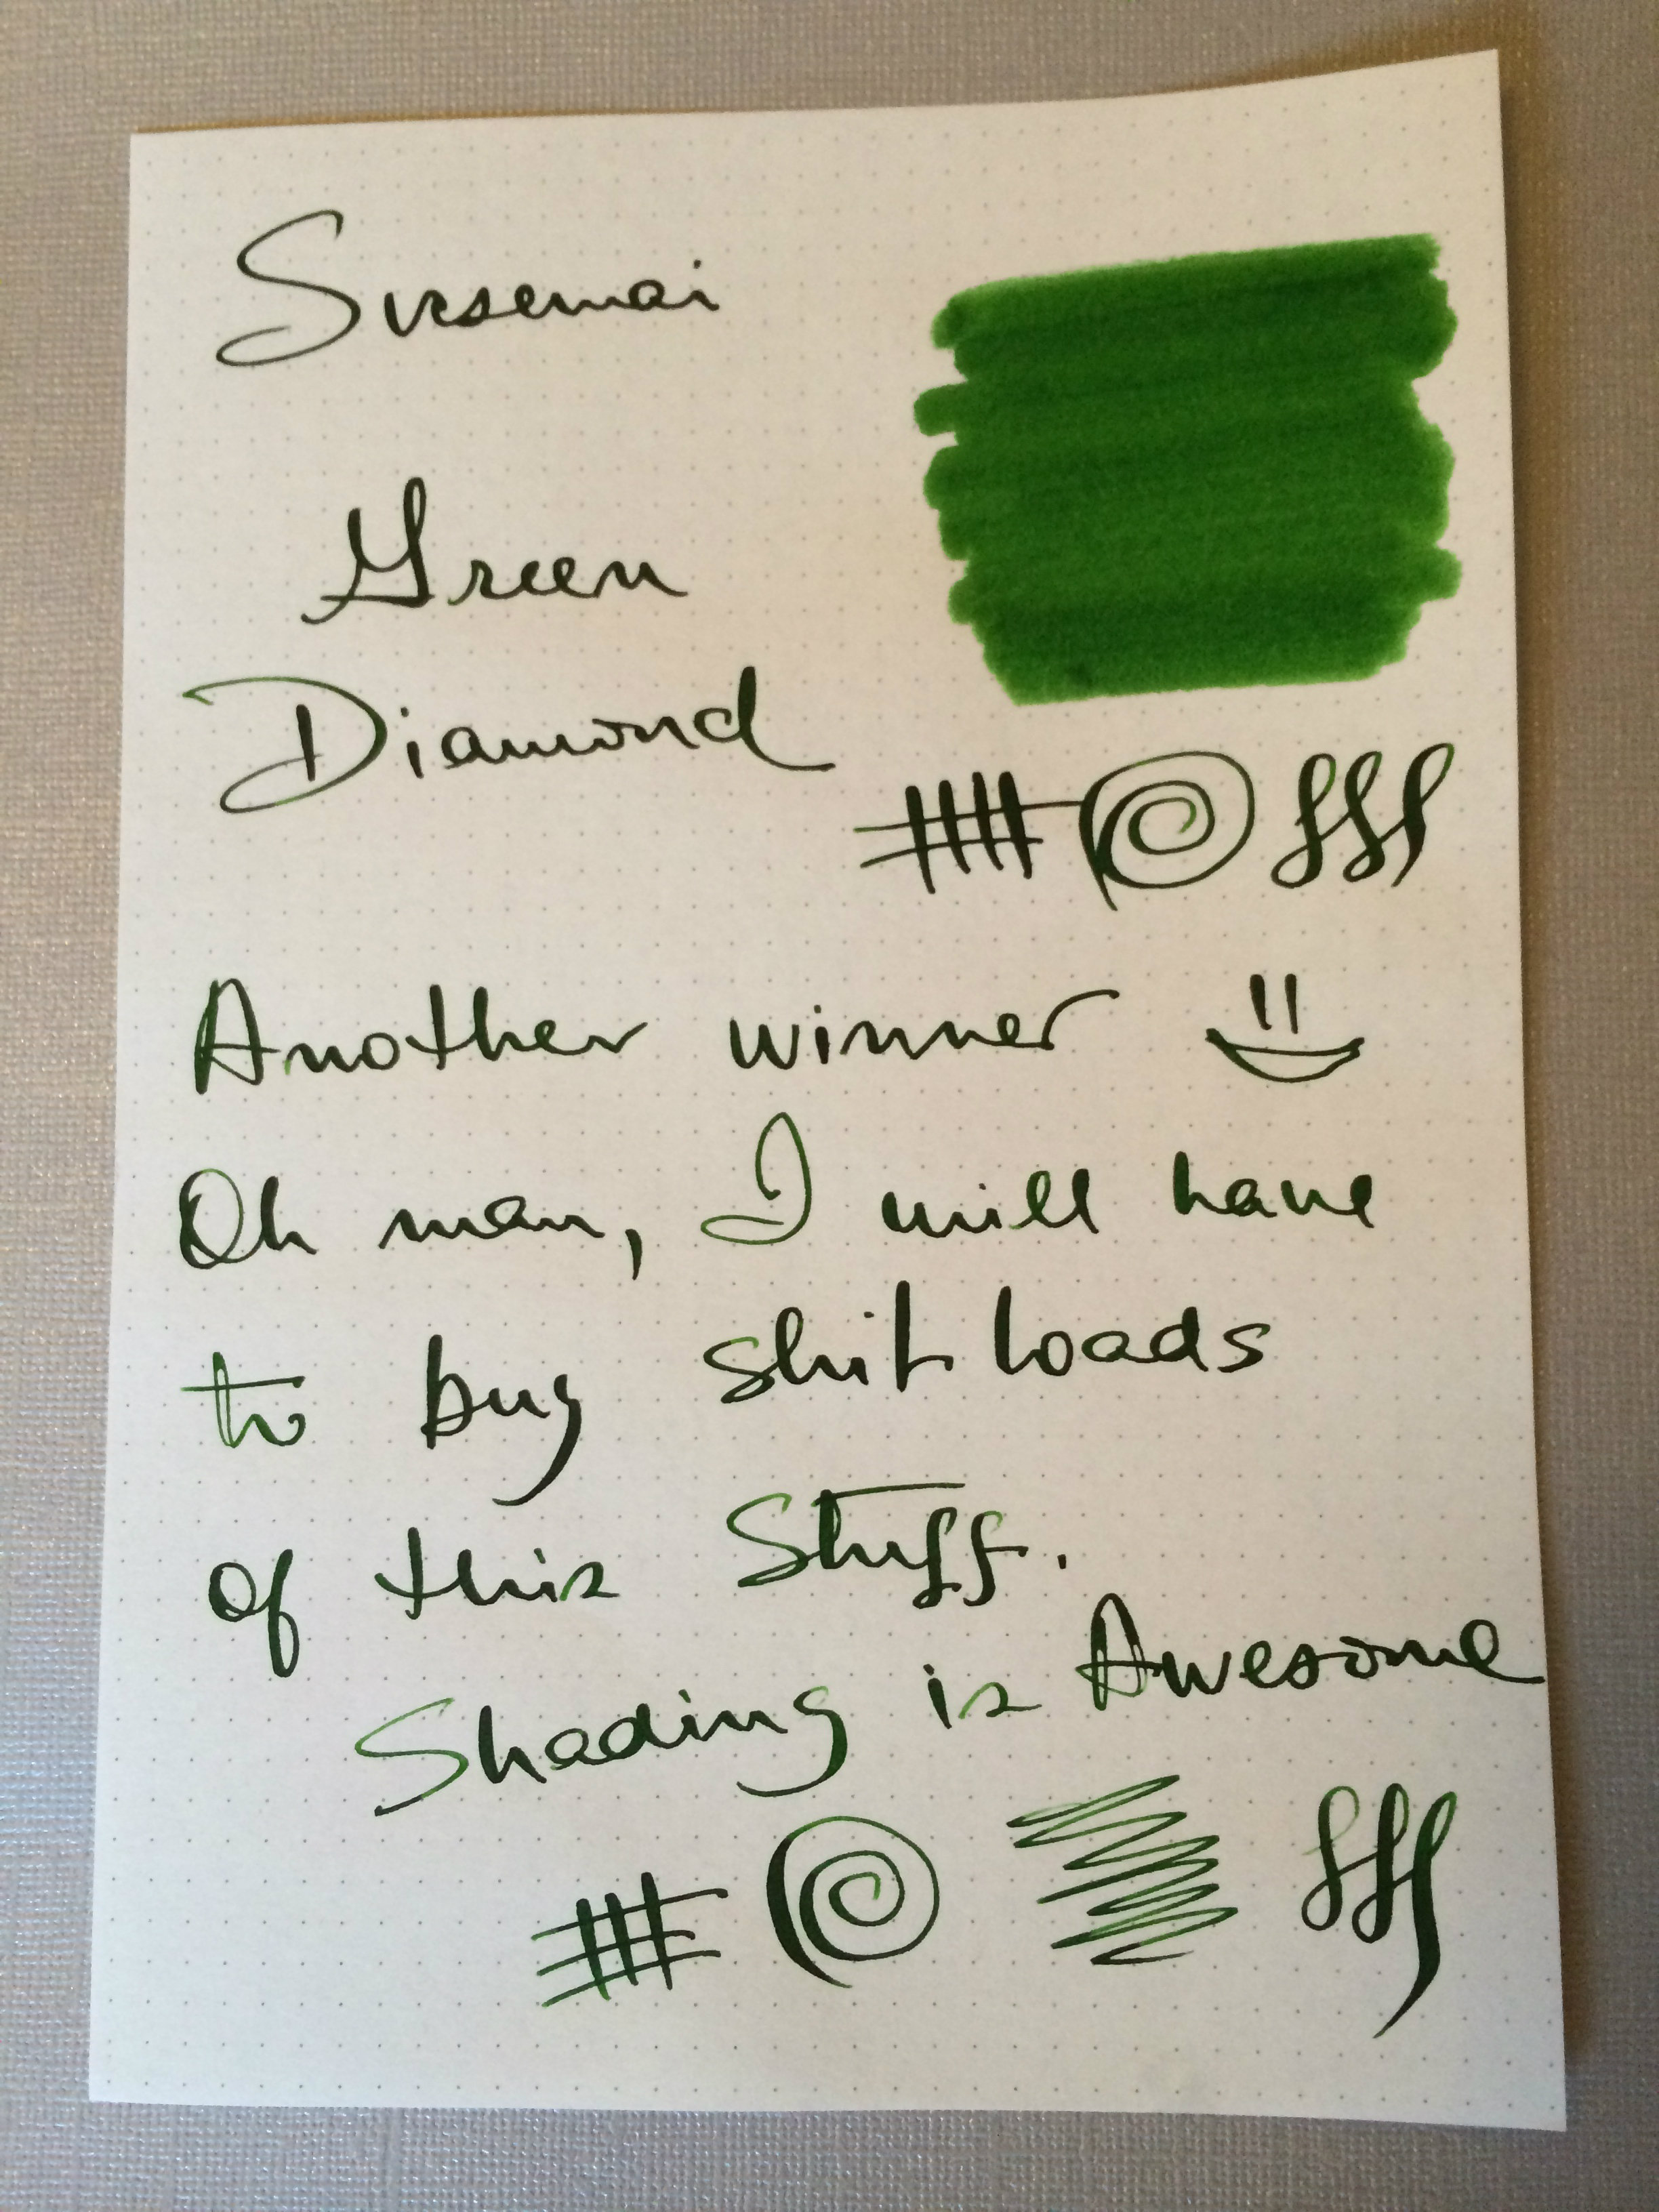 Susemai
Green
Diamond
Another winner
Oh man, I will have
to buy shit loads
of this Stuff.
Shading is Awesome